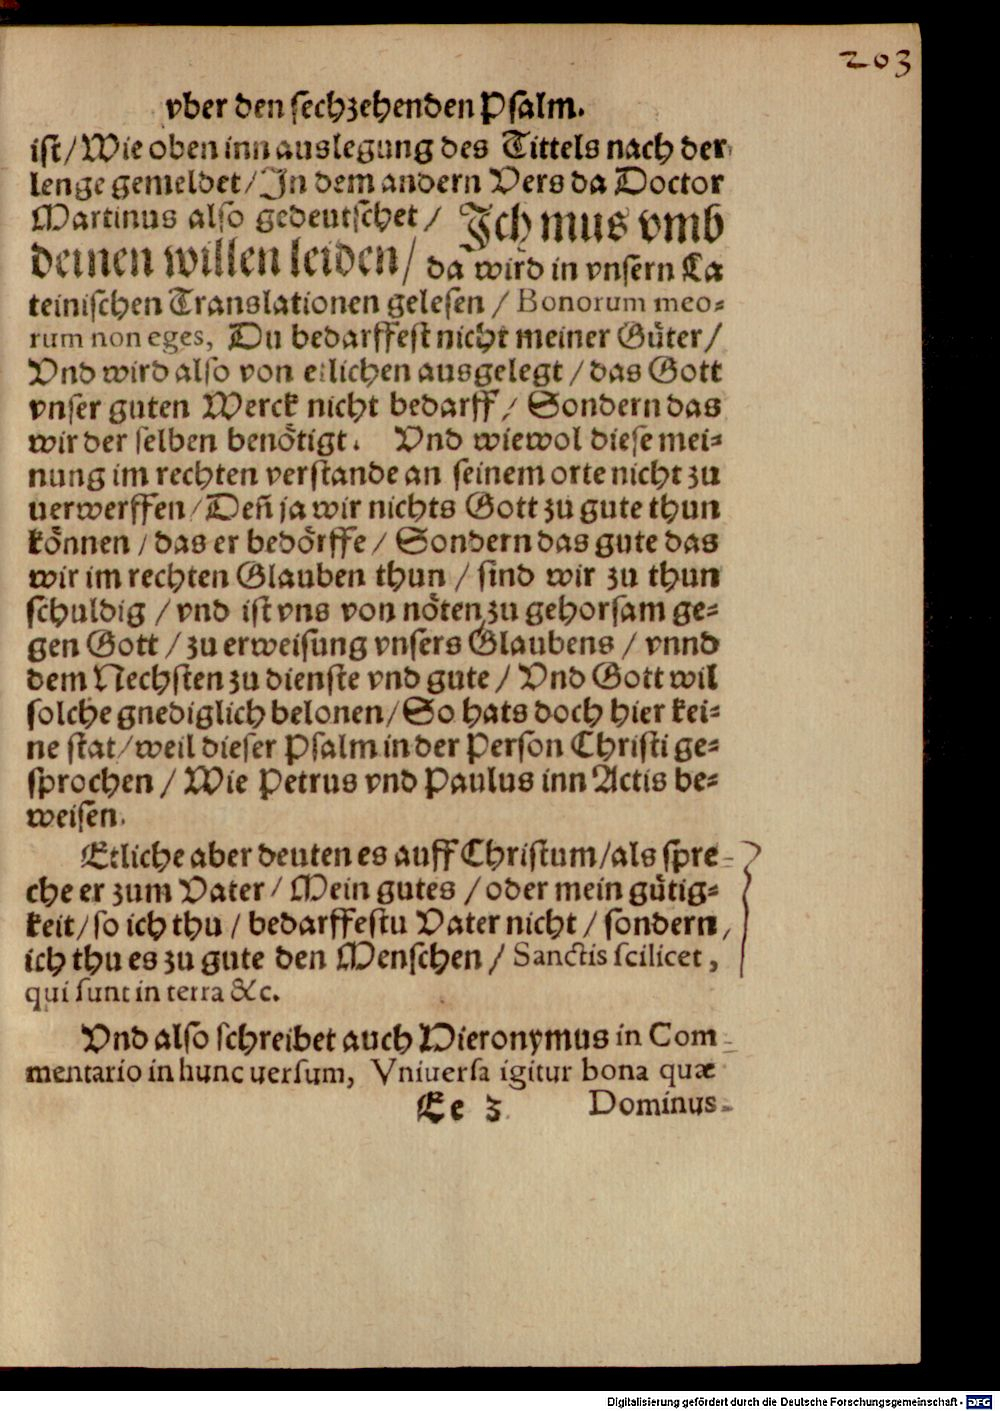 203
vber den sechzehenden Psalm.
ist/Wie oben inn auslegung des Tittels nach der
lenge gemeldet/In dem andern Vers da Doctor
Martinus also gedeutschet/ Ich mus vmb
deinen willen leiden/ da wird in vnsern La
teinischen Translationen gelesen / Bonorum meo-
rum non eges, Du bedarffest nicht meiner Gůter/
Vnd wird also von etlichen ausgelegt / das Gott
vnser guten Werck nicht bedarff / Sondern das
wir der selben benötigt. Vnd wiewol diese mei-
nung im rechten verstande an seinem orte nicht zu
uerwerffen/Deñ ja wir nichts Gott zu gute thun
können / das er bedörffe / Sondern das gute das
wir im rechten Glauben thun / sind wir zu thun
schuldig / vnd ist vns von nöten zu gehorsam ge-
gen Gott / zu erweisung vnsers Glaubens / vnnd
dem Nechsten zu dienste vnd gute / Vnd Gott wil
solche gnediglich belonen/So hats doch hier kei-
ne stat/weil dieser Psalm in der Person Christi ge-
sprochen / Wie Petrus vnd Paulus inn Actis be-
weisen.
Etliche aber deuten es auff Christum/als spre-
che er zum Vater / Mein gutes / oder mein gůtig-
keit/so ich thu / bedarffestu Vater nicht / sondern,
ich thu es zu gute den Menschen / Sanctis scilicet,
qui sunt in terra &c.
Vnd also schreibet auch Hieronymus in Com-
mentario in hunc uersum, Vniuersa igitur bona quæ
Ee 3 Dominus-
Digitalisierung gefördert durch die Deutsche Forschungsgemeinschaft - DFG